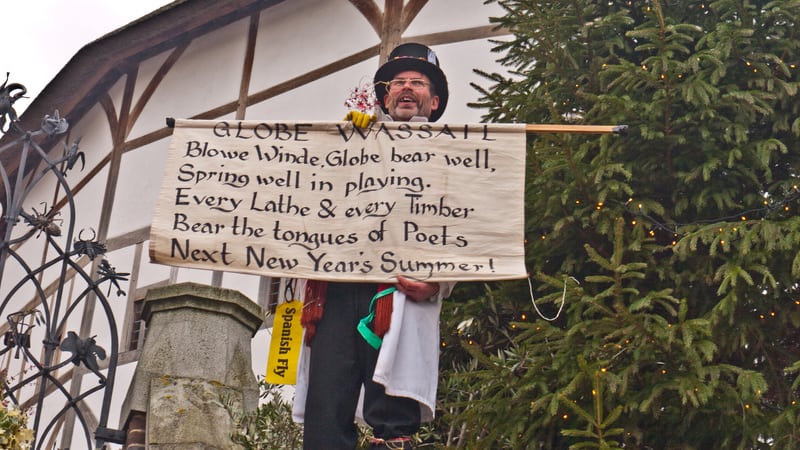 GLOBE WASSAIL
Blowe Winde, Globe bear well,
Spring well in playing.
Every Lathe & every Timber
Bear the tongues of Poets
Next New Year's Summer!
Spanish Fly